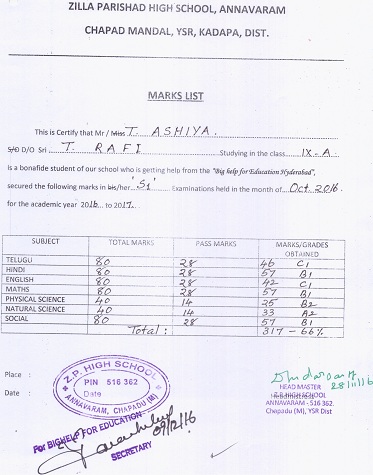 ZILLA PARISHAD HIGH SCHOOL, ANNAVARAM
CHAPAD MANDAL, YSR, KADAPA, DIST.
MARKS LIST
This is Certify that Mr / Miss T. ASHIYA.
S/O D/O Sri T. RAFI Studying in the class IX-A.
is a bonafide student of our school who is getting help from the "Big help for Education Hyderabad",
secured the following marks in his/her 'S1' Examinations held in the month of Oct 2016.
for the academic year 2016 to 2017.
SUBJECT TOTAL MARKS PASS MARKS MARKS/GRADES OBTAINED
TELUGU 80 28 46 C1
HINDI 80 28 57 B1
ENGLISH 80 28 42 C1
MATHS 80 28 57 B1
PHYSICAL SCIENCE 40 14 25 B2
NATURAL SCIENCE 40 14 33 A2
SOCIAL 80 28 57 B1
Total: 317 - 66%
Place :
Date :
Z.P. HIGH SCHOOL
PIN 516 362
Date
ANNAVARAM, CHAPADU (M), YSR
For BIGHELP FOR EDUCATION
09/12/16
SECRETARY
28/11/16
HEAD MASTER
Z.P. HIGH SCHOOL
ANNAVARAM - 516 362.
Chapadu (M), YSR Dist